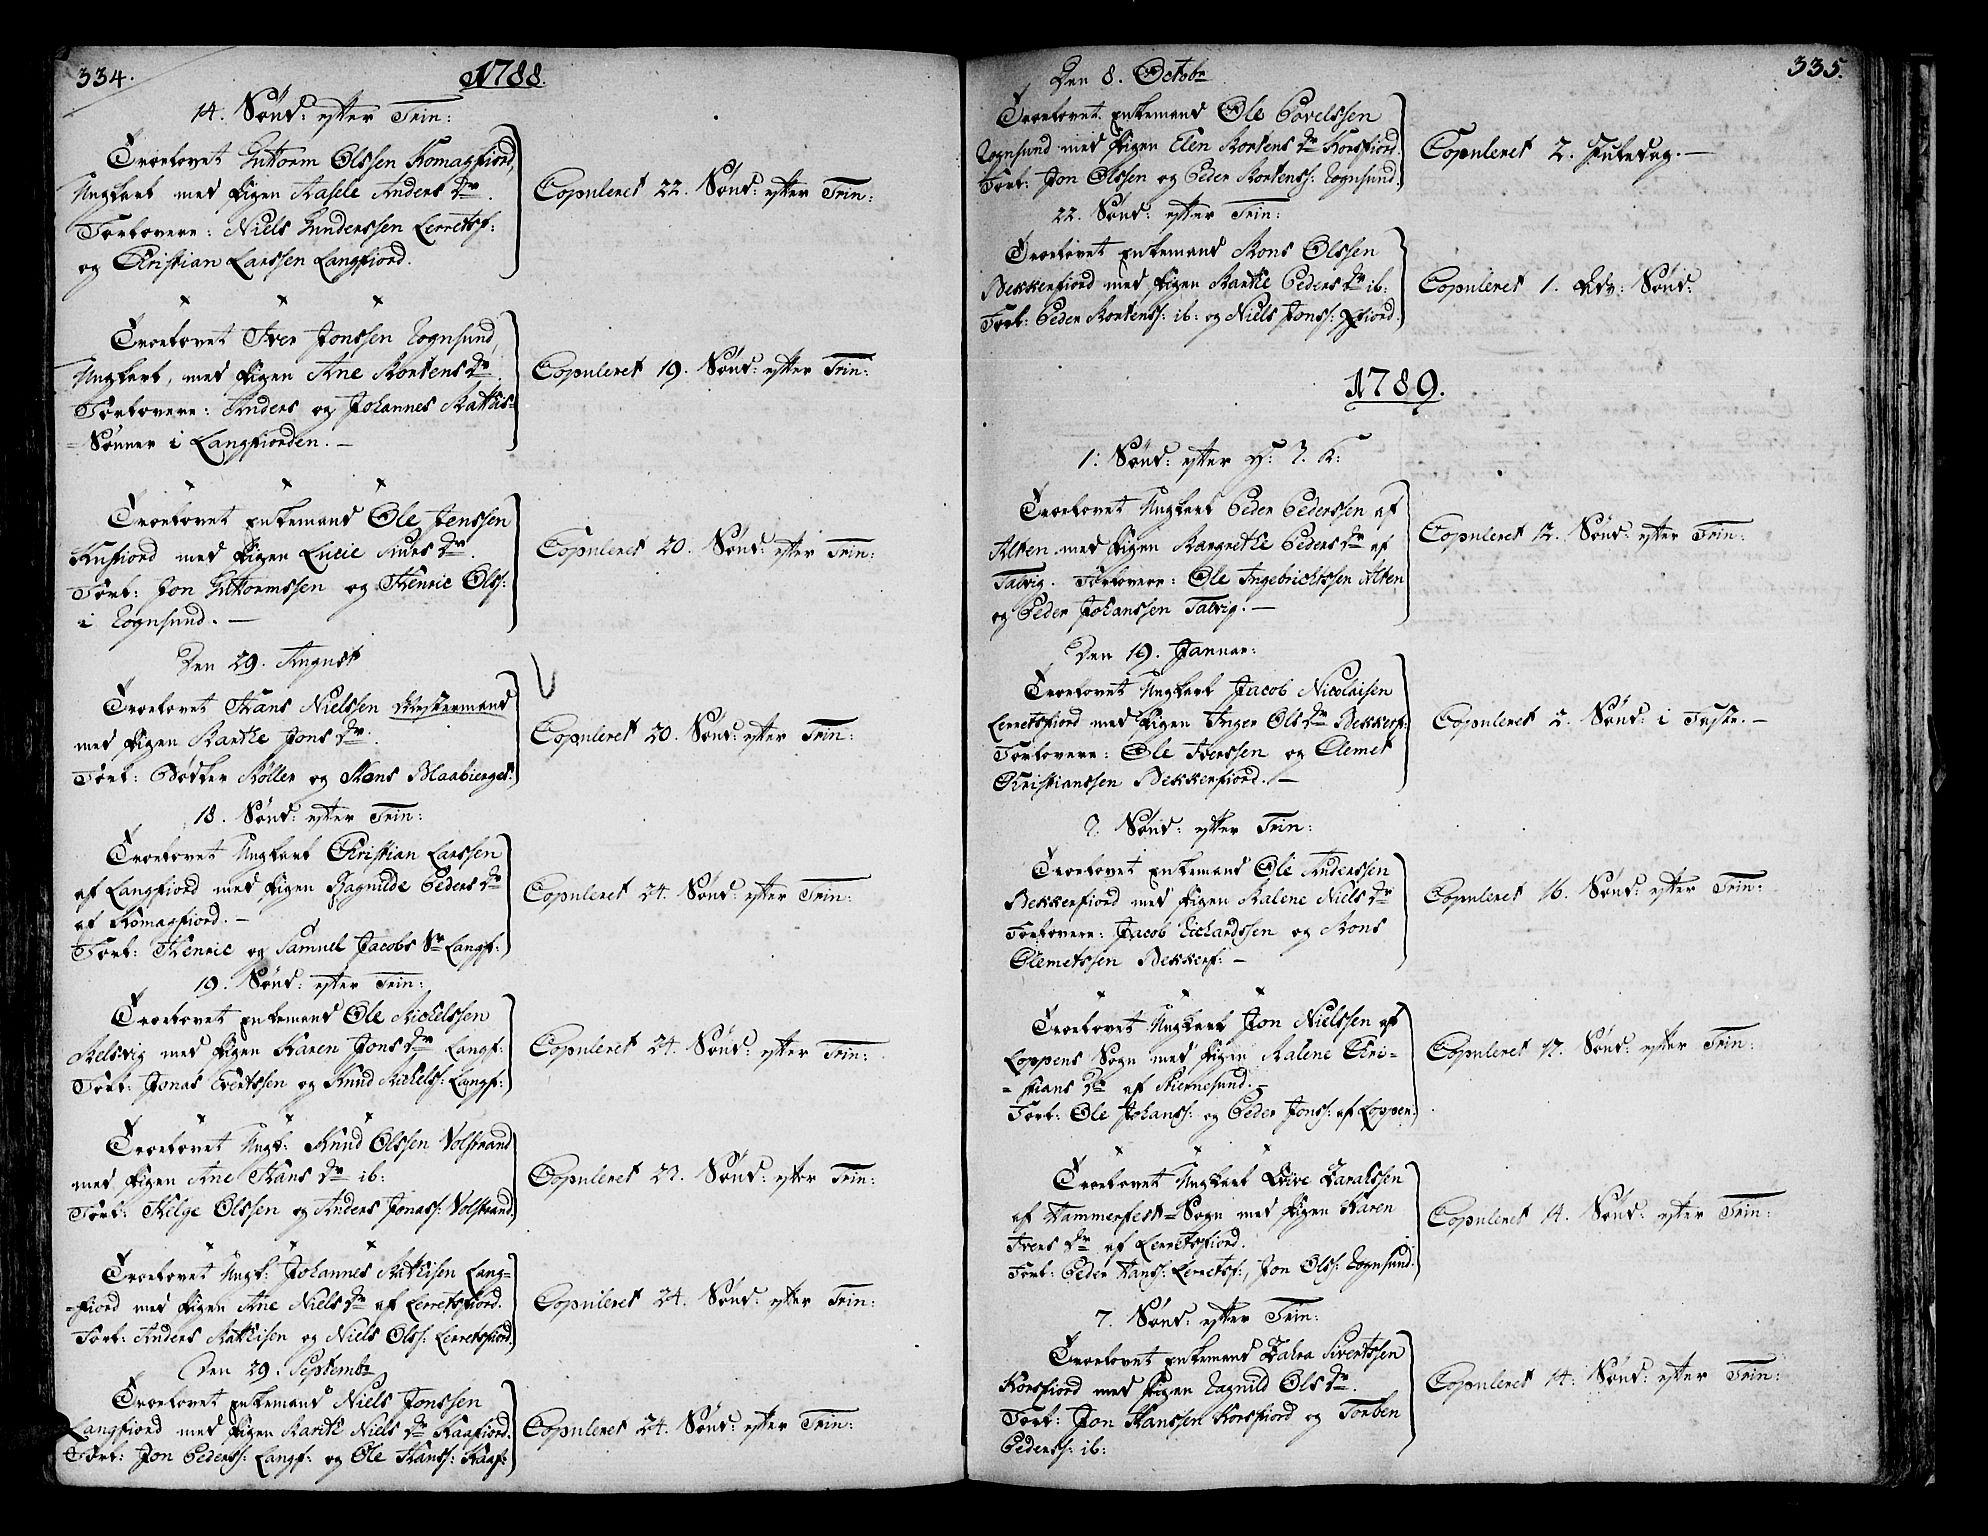 334.
1788.
14. Sønd: efter Trin:
Troelovet Guttorm Olssen Komagfiord,
Ungkarl med Pigen Aasele Anders Dr.
Forlovere: Niels Gunderssen Lerretsf:
og Christian Larssen Langfiord.
Copuleret 22. Sønd: efter Trin:
Troelovet Iver Jonssen Rognsund,
Ungkarl, med Pigen Ane Mortens Dr.
Forlovere: Anders og Johannes Mathis=
=Sønner i Langfiorden. —
Copuleret 19. Sønd: efter Trin:
Troelovet Enkemand Ole Jenssen
Kufiord med Pigen Lucie Siurs Dr.
Forl: Jon Guttormssen og Henric Olss:
i Rognsund. —
Copuleret 20. Sønd: efter Trin:
Den 29. August
Troelovet Hans Nielssen Westermand
med Pigen Marthe Jons Dr.
Forl: Bødker Møller og Mons Blaabierges:
Copuleret 20. Sønd: efter Trin:
18. Sønd: efter Trin:
Troelovet Ungkarl Christian Larssen
af Langfiord med Pigen Ragnilde Peders Dr
af Komagfiord. —
Forl: Henric og Samuel Jacobs Sr Langf:
Copuleret 24. Sønd: efter Trin:
19. Sønd: efter Trin:
Troelovet Enkemand Ole Michelssen
Melsvig med Pigen Karen Jons Dr Langf:
Forl: Jonas Evertssen og Knud Michelss: Langf:
Copuleret 24. Sønd: efter Trin:
Troelovet Ungk: Knud Olssen Volstrand
med Pigen Ane Hans Dr ib:
Forl: Helge Olssen og Anders Jonass: Volstrand.
Copuleret 23. Sønd: efter Trin:
Troelovet Ungk: Johannes Mathisen Lang=
=fiord med Pigen Ane Niels Dr af Lerretsfiord.
Forl: Anders Mathisen og Niels Olss: Lerretsfiord.
Copuleret 24. Sønd: efter Trin:
Den 29. Septembr
Troelovet Enkemand Niels Jonssen
Langfiord med Pigen Marithe Niels Dr Kaafiord.
Forl: Jon Pederss: Langf: og Ole Hanss: Kaaf:
Copuleret 24. Sønd: efter Trin:
335.
Den 8. Octobr
Troelovet Enkemand Ole Povelssen
Rognsund med Pigen Elen Mortens Dr Korsfiord.
Forl: Jon Olssen og Peder Mortenss: Rognsund.
Copuleret 2. Juledag. —
22. Sønd: efter Trin:
Troelovet Enkemand Mons Olssen
Bekkerfiord med Pigen Marthe Peders Dr ib:
Forl: Peder Mortenss: ib: og Niels Jonss:
Copuleret 1. Adv: Sønd:
1789.
1. Sønd: efter H: 3. K:
Troelovet Ungkarl Peder Pederssen af
Alten med Pigen Margrethe Peders Dr af
Talvig. Forlovere: Ole Ingebrichtssen Alten
og Peder Johanssen Talvig. —
Copuleret 12. Sønd: efter Trin:
Den 19. Januar:
Troelovet Ungkarl Jacob Nicolaisen
Lerretsfiord med Pigen Inger Ols Dr Bekkerf:
Forlovere: Ole Iverssen og Clemet
Christianssen Bekkerfiord. —
Copuleret 2. Sønd: i Faste. —
3. Sønd: efter Trin:
Troelovet Enkemand Ole Anderssen
Bekkerfiord med Pigen Malene Niels Dr
Forlovere: Jacob Richardssen og Mons
Clemetssen Bekkerf: —
Copuleret 16. Sønd: efter Trin:
Troelovet Ungkarl Jon Nielssen af
Loppens Sogn med Pigen Malene Chri=
=stians Dr af Stiernesund. —
Forl: Ole Johanss: og Peder Jonss: af Loppen.
Copuleret 17. Sønd: efter Trin:
Troelovet Ungkarl Zaralssen
af Hammerfest=Sogn med Pigen Karen
Ivers Dr af Lerretsfiord.
Forl: Peder Hanss: Lerretsf:, Jon Olss: Rognsund.
Copuleret 14. Sønd: efter Trin:
7. Sønd: efter Trin:
Troelovet Enkemand Sivertssen
Korsfiord med Pigen Ragnild Ols Dr.
Forl: Jon Hanssen Korsfiord og Torben
Pederss: ib:
Copuleret 14. Sønd: efter Trin: